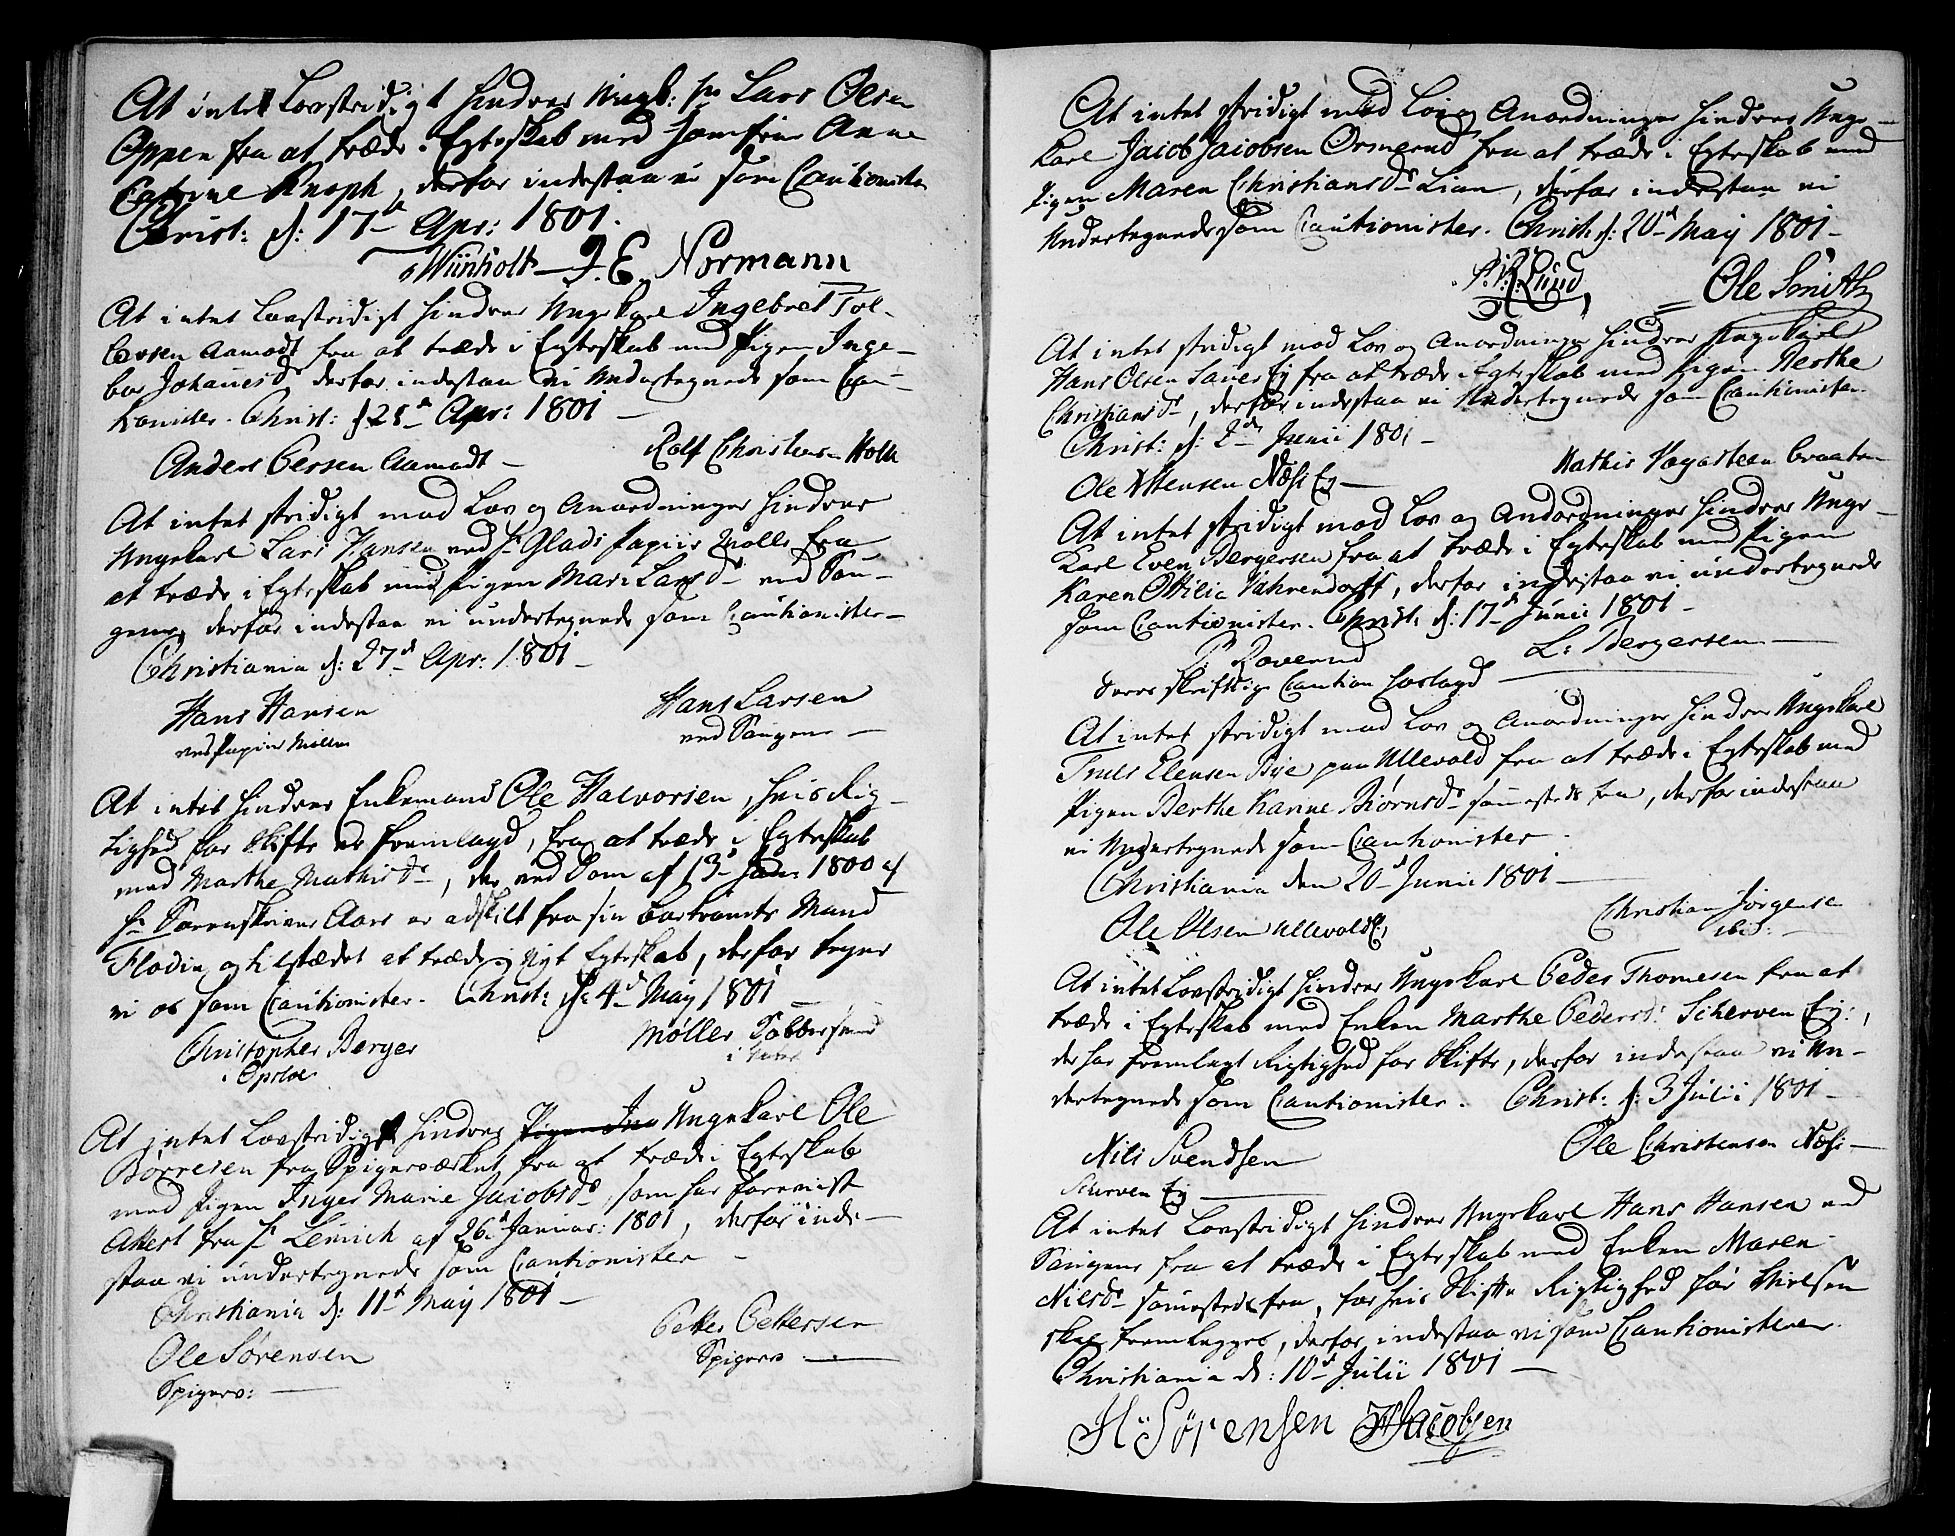 At intet Lovstridigt hindrer Ungk: Hr Lars Olsen
Oppen fra at træde i Egteskab med Jomfrue Anne
Catrine Knoph, derfor indestaa vi som Cautionister
Christ: d: 17de Apr: 1801.
Wünholt J. E. Normann
At intet Lovstridigt hindrer Ungekarl Ingebret Tol-
levsen Aamodt fra at træde i Egteskab med Pigen Inge-
bor Johannesdr derfor indestaa vi Undertegnede som Cau-
tionister. Christ: d 28de Apr: 1801 –
Anders Persen Aamodt – Rolf Christensen Holm
At intet stridigt mod Lov og Anordninger hindrer
Ungekarl Lars Hansen ved Hr Glads Papiir Mølle fra
at træde i Egteskab med Pigen Mari Larsdr ved Sau-
gene, derfor indestaa vi undertegnede som Cautionister –
Christiania d: 27de Apr: 1801 –
Hans Hansen Hans Larsen
ved Papiir Møllen ved Saugene –
At intet hindrer Enkemand Ole Halvorsen, hvis Rig-
tighed for Skifte er fremlagd, fra at træde i Egteskab
med Marthe Mathisdr, der ved Dom af 13de Janr 1800 af
Hr Sorenskriver Aars er adskilt fra sin bortrømte Mand
Flodin og tilstædet at træde i Nyt Egteskab, derfor tegner
vi os som Cautionister. Christ: d: 4de May 1801 –
Christopher Berger Møller
i Opsloe
At intet Lovstridigt hindrer Pigen Ungekarl Ole
Børresen fra Spigerværket fra at træde i Egteskab
med Pigen Inger Marie Jacobsdr, som har foreviist
Attest fra Hr Lemich af 26de Januar: 1801, derfor inde-
staa vi undertegnede som Cautionister –
Christiania d: 11te May 1801 –
Ole Sørensen Petter Pettersen
Spigerv: – Spigerv –
At intet stridigt mod Lov og Anordninger hindrer Unge-
karl Jacob Jacobsen Ormerud fra at træde i Egteskab med
Pigen Maren Christiansdr Lian, derfor indestaa vi
Undertegnede som Cautionister. Christ: d: 20de May 1801 –
Lund Ole Smith
At intet stridigt mod Lov og Anordninger hindrer Ungekarl
Hans Olsen Saxer Ej fra at træde i Egteskab med Pigen Berthe
Christiansdr, derfor indestaa vi Undertegnede som Cautionister
Christ: d: 2de Junii 1801 –
Ole Næss Ej – Mathis Braaten
At intet stridigt mod Lov og Andordninger hindrer Unge-
karl Even Bergersen fra at træde i Egteskab med Pigen
Karen Ottilia Vahrendorff, derfor indestaa vi undertegnede
som Cautionister. Christ: d: 17de Junii 1801 –
P. Roverud L: Bergersen –
deres skriftlige Caution forlagd
At intet stridigt mod Lov og Anordninger hindrer Ungekarl
Truls Elensen Bye paa Ullevold fra at træde i Egteskab med
Pigen Berthe Karine Biørnsdr sammesteds fra, derfor indestaa
vi Undertegnede som Cautionister.
Christiania den 20de Junii 1801 –
Ole Olsen Ullevold Christian Jørgense
ibid: –
At intet Lovstridigt hindrer Ungekarl Peder Thomesen fra at
træde i Egteskab med Enken Marthe Pedersd: Scherven Ej:,
der har fremlagt Rigtighed for Skifte, derfor indestaa vi Un-
dertegnede som Cautionister. Christ: d: 3 Julii 1801 –
Nils Svendsen Ole Christensen Næss –
Scherven Ej –
At intet Lovstridigt hindrer Ungekarl Hans Hansen ved
Saugene fra at træde i Egteskab med Enken Maren
Nilsdr sammesteds fra, for hvis Skifte Rigtighed før Vielsen
skal fremlægges, derfor indestaa vi som Cautionisterer.
Christiania d: 10de Julii 1801 –
H Sørensen H Jacobsen